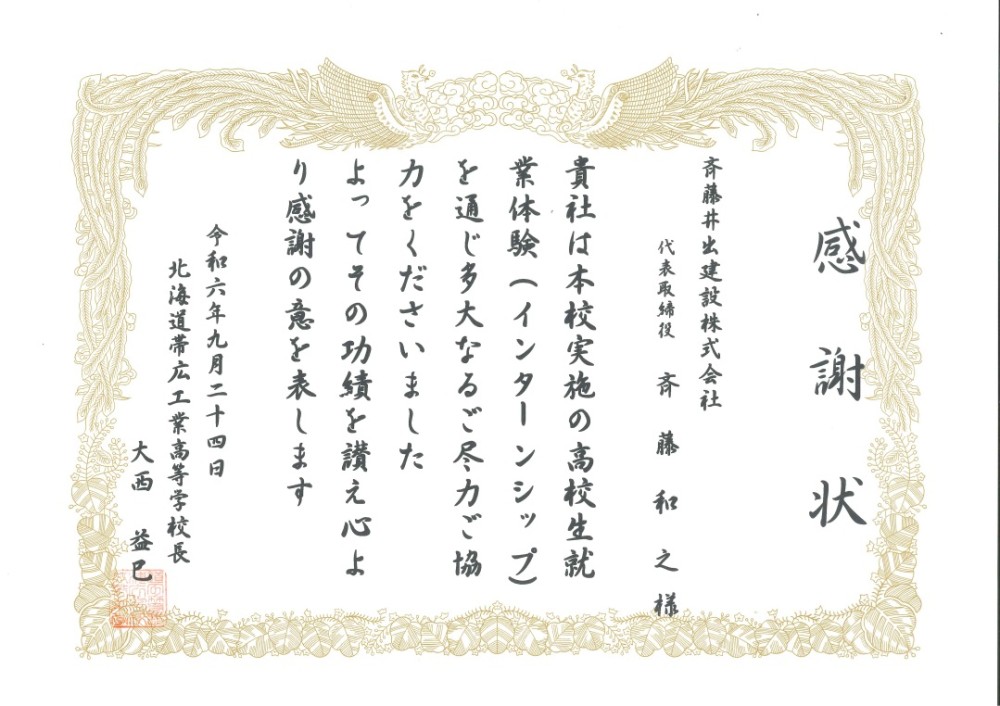 感謝状
斉藤井出建設株式会社
代表取締役 斉藤和之様
貴社は本校実施の高校生就
業体験(インターンシップ)
を通じ多大なるご尽力ご協
力をくださいました
よってその功績を讃え心よ
り感謝の意を表します
令和六年九月二十四日
北海道帯広工業高等学校長
大西 益巳